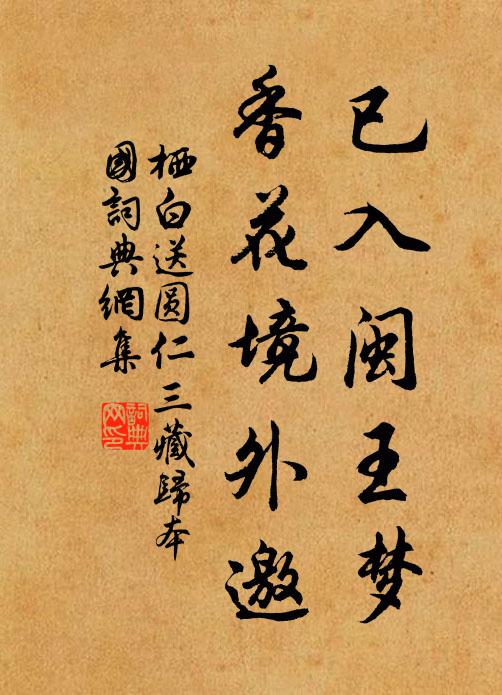 已入闽王梦
香花境外邀
栖白送圆仁三藏歸本
國詞典網集
詞典网印